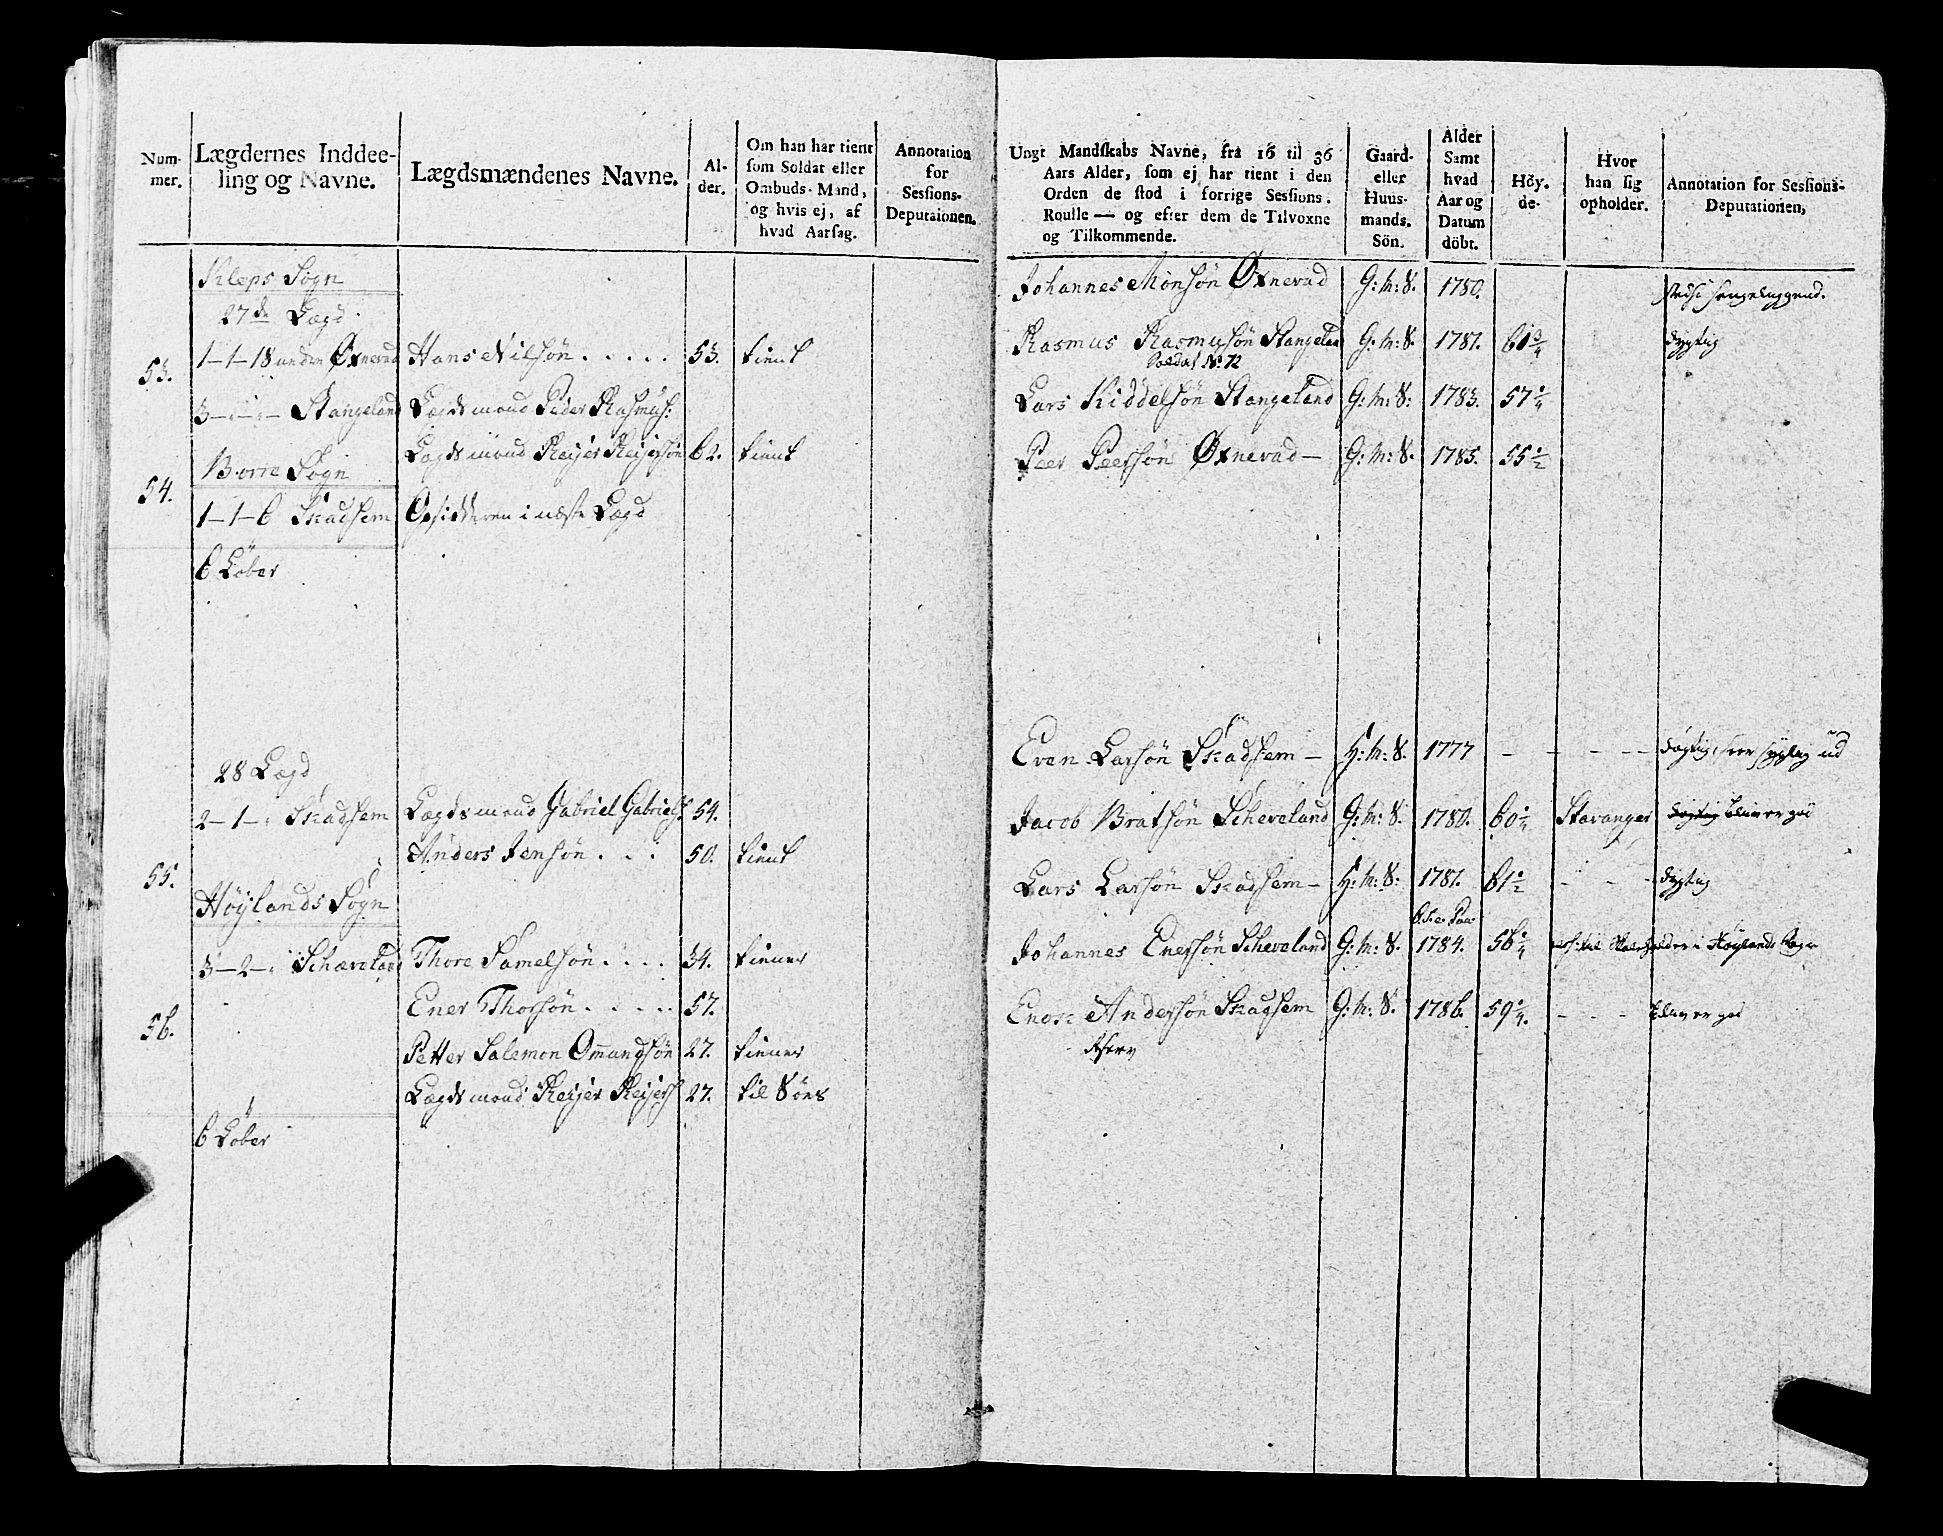 Num-
mer.
Lægdernes Inddee-
ling og Navne.
Lægdsmændenes Navne.
Al-
der.
Om han har tient
som Soldat eller
Ombuds-Mand,
og hvis ej, af
hvad Aarsag.
Annotation
for
Sessions-
Deputaionen.
Kleps Sogn
27de Lægd
53. 1-1-18 anden Øxnevad Hans Nilsøn 53. tient
3-"-"- Stangeland Lægdsmand Peder Rasmus:
Lægdsmand Reijer Reijersøn 62. tient
Borre Sogn
54. 1-1-6 Skadsem Opsidderen i næste Lægd
6 Løber
28 Lægd
2-1-" Skadsem Lægdsmand Gabriel Gabriels: 54.
Anders Jensøn 50. tient
55. Høylands Sogn
3-2-" Schæveland Thore Samelsøn 34. tiener
Ener Thorsøn 57.
56. Petter Salemon Omundsøn 27. tiener
Lægdsmand Reijer Reijers: 27. til Søes
6 Løber
Ungt Mandskabs Navne, fra 16 til 36
Aars Alder, som ej har tient i den
Orden de stod i forrige Sessions.
Roulle — og efter dem de Tilvoxne
og Tilkommende.
Gaard-
eller
Huus-
mands.
Sön.
Alder
Samt
hvad
Aar og
Datum
döbt.
Höy.
de-
Hvor
han sig
opholder.
Annotation for Sessions-
Deputationen,
Johannes Monsøn Øxnevad G: M: S. 1780.
Rasmus Rasmusøn Stangelan G: M: S. 1781. 61 3/4 dygtig
Soldat No. 72
Lars Kiddelsøn Stangeland G: M: S: 1783. 57 1/4
Peer Peersøn Øxnevad — G: M: S. 1785. 55 1/2
Even Larsøn Skadsem — H: M: S. 1777 - - - - dygtig, seer sygelig ud
Jacob Bratsøn Scheveland G: M: S. 1780. 60 1/4 Stavanger
Lars Larsøn Skadsem — H: M: S. 1781. 61 1/2 - - - dygtig
Johannes Enersøn Scheveland G: M: S. 1784. 56 1/4
Enok Andersøn Skadsem G: M: S. 1786. 59 1/4. - - -